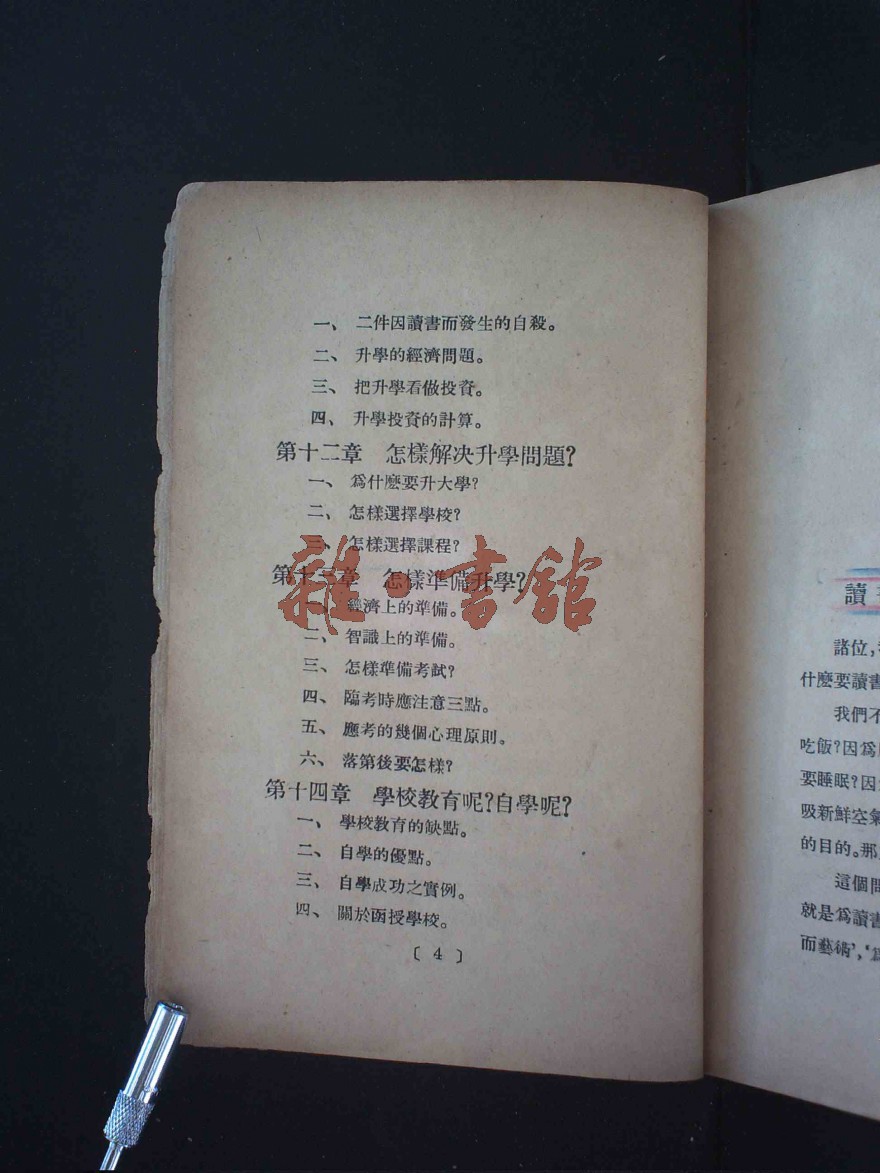 一、 二件因讀書而發生的自殺。
二、 升學的經濟問題。
三、 把升學看做投資。
四、 升學投資的計算。
第十二章 怎樣解決升學問題?
一、 爲什麽要升大學?
二、 怎樣選擇學校?
三、 怎樣選擇課程?
第十三章 怎樣準備升學?
一、 經濟上的準備。
二、 智識上的準備。
三、 怎樣準備考試?
四、 臨考時應注意三點。
五、 應考的幾個心理原則。
六、 落第後要怎樣?
第十四章 學校教育呢?自學呢?
一、 學校教育的缺點。
二、 自學的優點。
三、 自學成功之實例。
四、 關於函授學校。
〔 4 〕
雜·書館
讀
諸位,
什麽要讀書
我們不
吃飯?因爲
要睡眠?因
吸新鮮空氣
的目的。那
這個問
就是爲讀書
而藝術’,‘爲